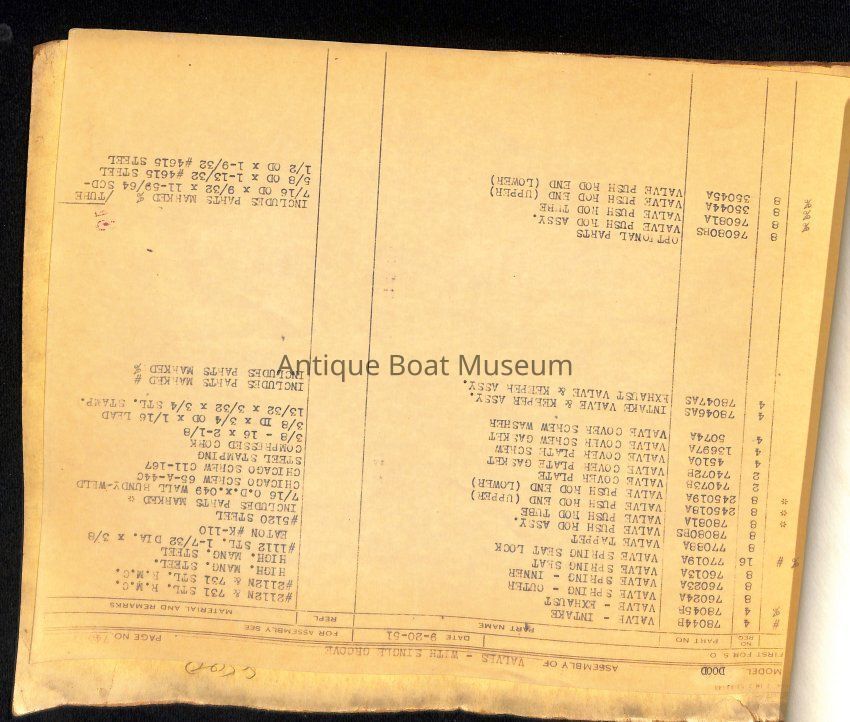 MODEL DOOD
ASSEMBLY OF VALVES - WITH SINGLE GROOVE
FIRST FOR S. O.
DATE 9-20-51 FOR ASSEMBLY SEE PAGE NO
NO REQ PART NO PART NAME REPL MATERIAL AND REMARKS
# 4 78044B VALVE - INTAKE #2112N & 731 STL. R.M.C.
% 4 78045B VALVE - EXHAUST #2112N & 731 STL. R.M.C.
8 76024A VALVE SPRING - OUTER HIGH. MANG. STEEL.
8 76025A VALVE SPRING - INNER HIGH. MANG. STEEL
8 76013A VALVE SPRING SEAT #1112 STL. 1-7/32 DIA. x 3/8
% # 16 77019A VALVE SPRING SEAT LOCK EATON #K-110
8 77038A VALVE TAPPET #5120 STEEL
8 78080BS VALVE PUSH ROD ASSY. INCLUDES PARTS MARKED *
* 8 78081A VALVE PUSH ROD TUBE 7/16 O.D.x.049 WALL BUNDY-WELD
* 8 245018A VALVE PUSH ROD END (UPPER) CHICAGO SCREW 65-A-44C
* 8 245019A VALVE PUSH ROD END (LOWER) CHICAGO SCREW C11-167
2 74073B VALVE COVER PLATE STEEL STAMPING
2 74072B VALVE COVER PLATE GASKET COMPRESSED CORK
4 4510A VALVE COVER PLATE SCREW 3/8 - 16 x 2-1/8
4 13697A VALVE COVER SCREW GASKET 3/8 ID x 3/4 OD x 1/16 LEAD
4 5074A VALVE COVER SCREW WASHER 13/32 x 3/32 x 3/4 STL. STAMP.
4 78046AS INTAKE VALVE & KEEPER ASSY. INCLUDES PARTS MARKED #
4 78047AS EXHAUST VALVE & KEEPER ASSY. INCLUDES PARTS MARKED %
Antique Boat Museum
OPTIONAL PARTS
8 76080BS VALVE PUSH ROD ASSY. INCLUDES PARTS MARKED % /TUBE
% 8 76081A VALVE PUSH ROD TUBE 7/16 OD x 9/32 x 11-59/64 SCD-
% 8 35044A VALVE PUSH ROD END (UPPER) 5/8 OD x 1-13/32 #4615 STEEL
% 8 35045A VALVE PUSH ROD END (LOWER) 1/2 OD x 1-9/32 #4615 STEEL